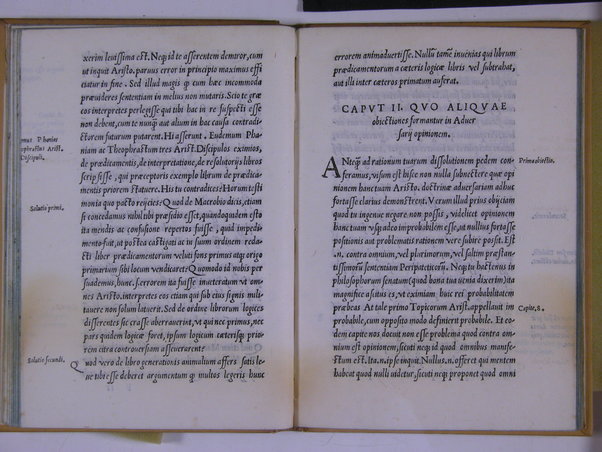 xerim leuissima est. Neq; id te asserentem demiror, cum
ut inquit Aristo. paruus error in principio maximus effi
ciatur in fine. Sed illud magis q cum hæc incommoda
præuideres sententiam in melius non mutaris. Scio te græ
cos interpretes perlegisse qui tibi hac in re suspecti esse
non debent, cum te nunq aut alium in hac causa contradi-
ctorem futurum putarent. Hi asserunt. Eudemum Pha
niam ac Theophrastum tres Arist. Discipulos eximios,
de prædicamentis, de interpretatione, de resolutorijs libros
scripsisse, qui præceptoris exemplo librum de prædica-
mentis priorem statuere. His tu contradices? Horum testi
monia quo pacto reijcies? Quod de Macrobio dicis, etiam
si concedamus nihil tibi præsidio esset, quandoquidem esto
ita mendis ac confusione repertos fuisse, quid impedi-
mento fuit, ut postea castigati ac in suum ordinem reda-
cti liber prædicamentorum veluti fons primus atq; origo
primarium sibi locum vendicaret? Quomodo id nobis per
suademus, hunc errorem ita fuisse inueteratum vt om-
nes Aristo. interpretes eos etiam qui sub eius signis mili-
tauere non solum latuere. Sed de ordine librorum logices
differentes sic crasse aberrauerint, vt qui nec primus, nec
pars quidem logicæ foret, ipsum logicum cæterisq; prio-
rem citra controuersiam assererent?
Quod vero de libro generationis animalium asseris satis le-
ue tibi esse deberet argumentum q multos legeris hunc
Phanias
Theophrastus Arist.
Discipuli.
Solutio primi.
Solutio secundi.
errorem animaduertisse. Nullum tamen inuenias qui librum
prædicamentorum a cæteris logicæ libris vel subtrahat,
aut illi inter cæteros primatum auferat.
CAPVT II. QVO ALIQVAE
obiectiones formantur in Aduer
sarij opinionem.
ANteq; ad rationum tuarum dissolutionem pedem con-
feramus, visum est hisce non nulla subnectere quæ opi
nionem hanc tuam Aristo. doctrinæ aduersariam adhuc
fortasse clarius demonstrent. Verum illud prius obijciam
quod tu ingenue negare non possis, videlicet opinionem
hanc tuam vsq; adeo improbabilem esse, at nullius fortasse
positionis aut problematis rationem vere subire possit. Est
n. contra omnium, vel plurimorum, vel saltim præstan-
tissimorum sententium Peripateticorum. Neq; tu hactenus in
philosophorum senatum (quod bona tua uenia dixerim) ita
magnifice ascitus es, vt eximiam huic rei probabilitatem
præbeas At tale primo Topicorum Arist. appellauit im
probabile, cum opposito modo definierit probabile. Et eo-
dem capite nos docuit non esse problema quod contra om-
nium est opinionem, sicuti neq; id quod omnibus manife-
stum est. Ita. n. ipse inquit. Nullus. n. asseret qui mentem
habeat quod nulli uidetur, sicuti neq; proponet quod omni
Prima obiectio.
Capite, 8.